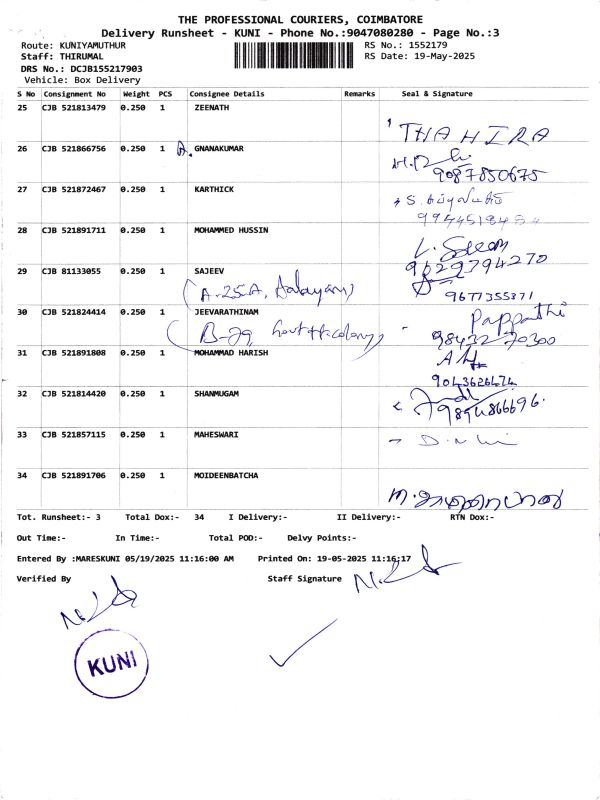 THE PROFESSIONAL COURIERS, COIMBATORE
Delivery Runsheet - KUNI - Phone No.:9047080280 - Page No.:3
Route: KUNIYAMUTHUR
RS No.: 1552179
Staff: THIRUMAL
RS Date: 19-May-2025
DRS No.: DCJB155217903
Vehicle: Box Delivery
S No Consignment No Weight PCS Consignee Details Remarks Seal & Signature
25 CJB 521813479 0.250 1 ZEENATH
THAHIRA
26 CJB 521866756 0.250 1 GNANAKUMAR
9087850675
27 CJB 521872467 0.250 1 KARTHICK
28 CJB 521891711 0.250 1 MOHAMMED HUSSIN
9629794270
29 CJB 81133055 0.250 1 SAJEEV
A-25A,
9677355371
30 CJB 521824414 0.250 1 JEEVARATHINAM
Pappathi
B-29,
9843270300
31 CJB 521891808 0.250 1 MOHAMMAD HARISH
9043626474
32 CJB 521814420 0.250 1 SHANMUGAM
9894866696
33 CJB 521857115 0.250 1 MAHESWARI
34 CJB 521891706 0.250 1 MOIDEENBATCHA
Tot. Runsheet:- 3 Total Dox:- 34 I Delivery:- II Delivery:- RTN Dox:-
Out Time:- In Time:- Total POD:- Delvy Points:-
Entered By :MARESKUNI 05/19/2025 11:16:00 AM Printed On: 19-05-2025 11:16:17
Verified By Staff Signature
KUNI